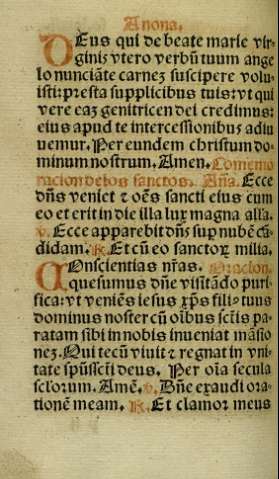 Anona.
DEus qui de beate marie vir-
giniz vtero verbũ tuum ange
lo nunciãte carnez suscipere volu-
isti: presta supplicibus tuis: vt qui
vere eaz genitricen dei credimus:
eius apud te intercessionibuz adiu
uemur. Per eundem christum do-
minum nostrum. Amen. Comemo
racion delos sanctos. Añа. Ecce
dñs veniet & oẽs sancti eius cum
eo et erit in die illa lux magna alla.
v. Ecce apparebit dñs sup nubẽ cã
didam. R. Et cũ eo sanctorꝝ milia.
COnscientias nr̃as. Oracion.
quesumus dñe visitãdo puri
fica: vt veniẽs iesus xp̃s fili⁹ tuus
dominus noster cũ oĩbus sctĩs pa-
ratam sibi in nobis inueniat mãsio
nez. Qui tecũ viuit & regnat in vni-
tate sp̃ussctĩ deus. Per oĩa secula
sclorum. Amẽ. v. Dñe exaudi ora-
tionẽ meam. R. Et clamor meus